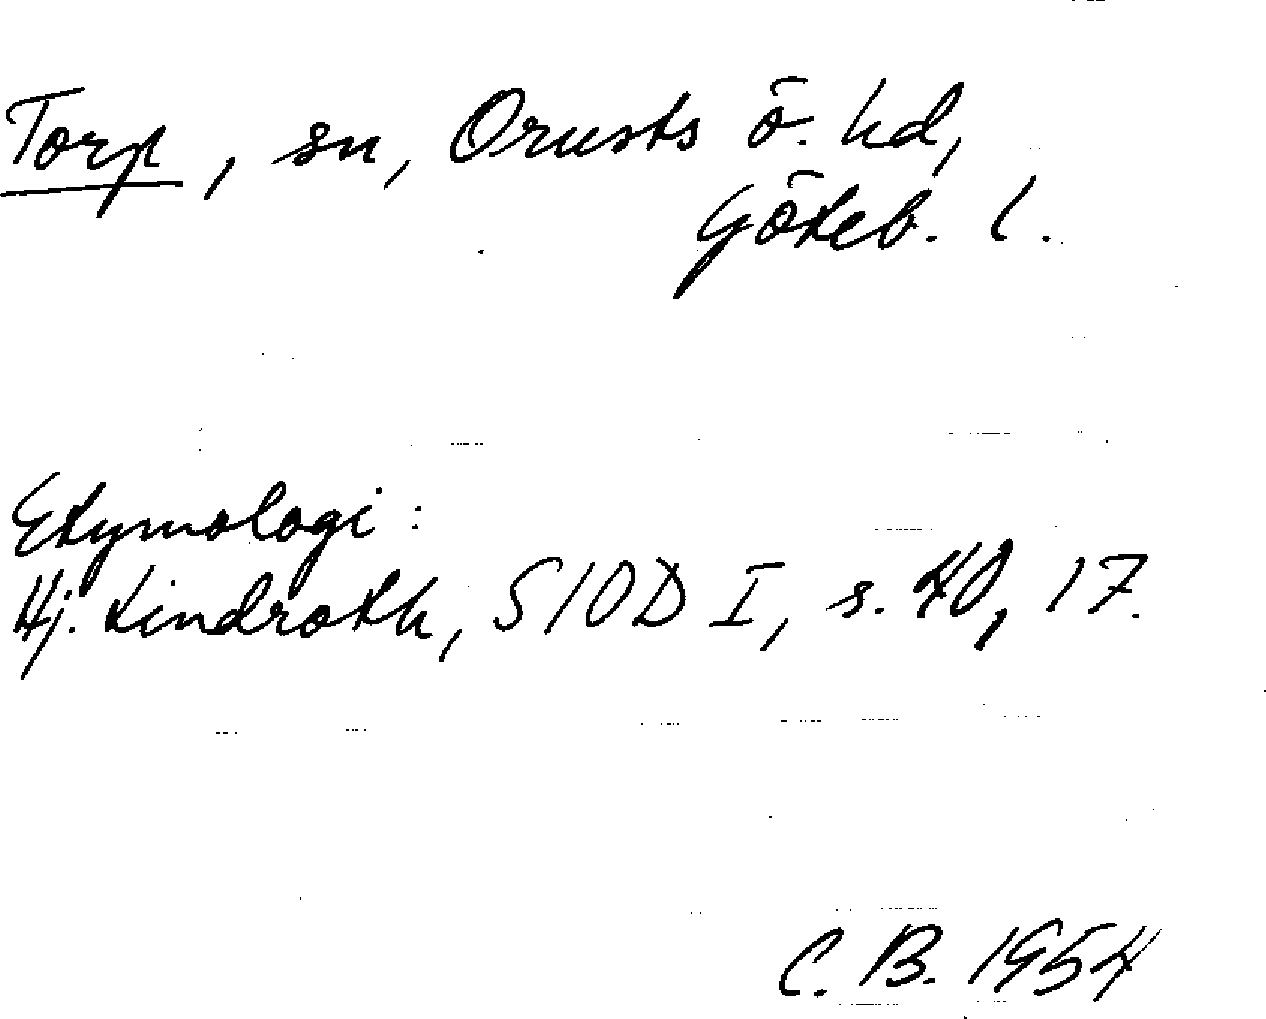 Torp, sn, Orusts ö. hd,
Göteb. l.
Etymologi:
Hj. Lindroth, SIOD I, s. 40, 17.
C. B. 1954